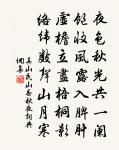 夜色秋光共一闌
飽收風露入脾肝
虛檐立盡梧桐影
絡緯數聲山月寒
真山民山間秋夜詞典
網集